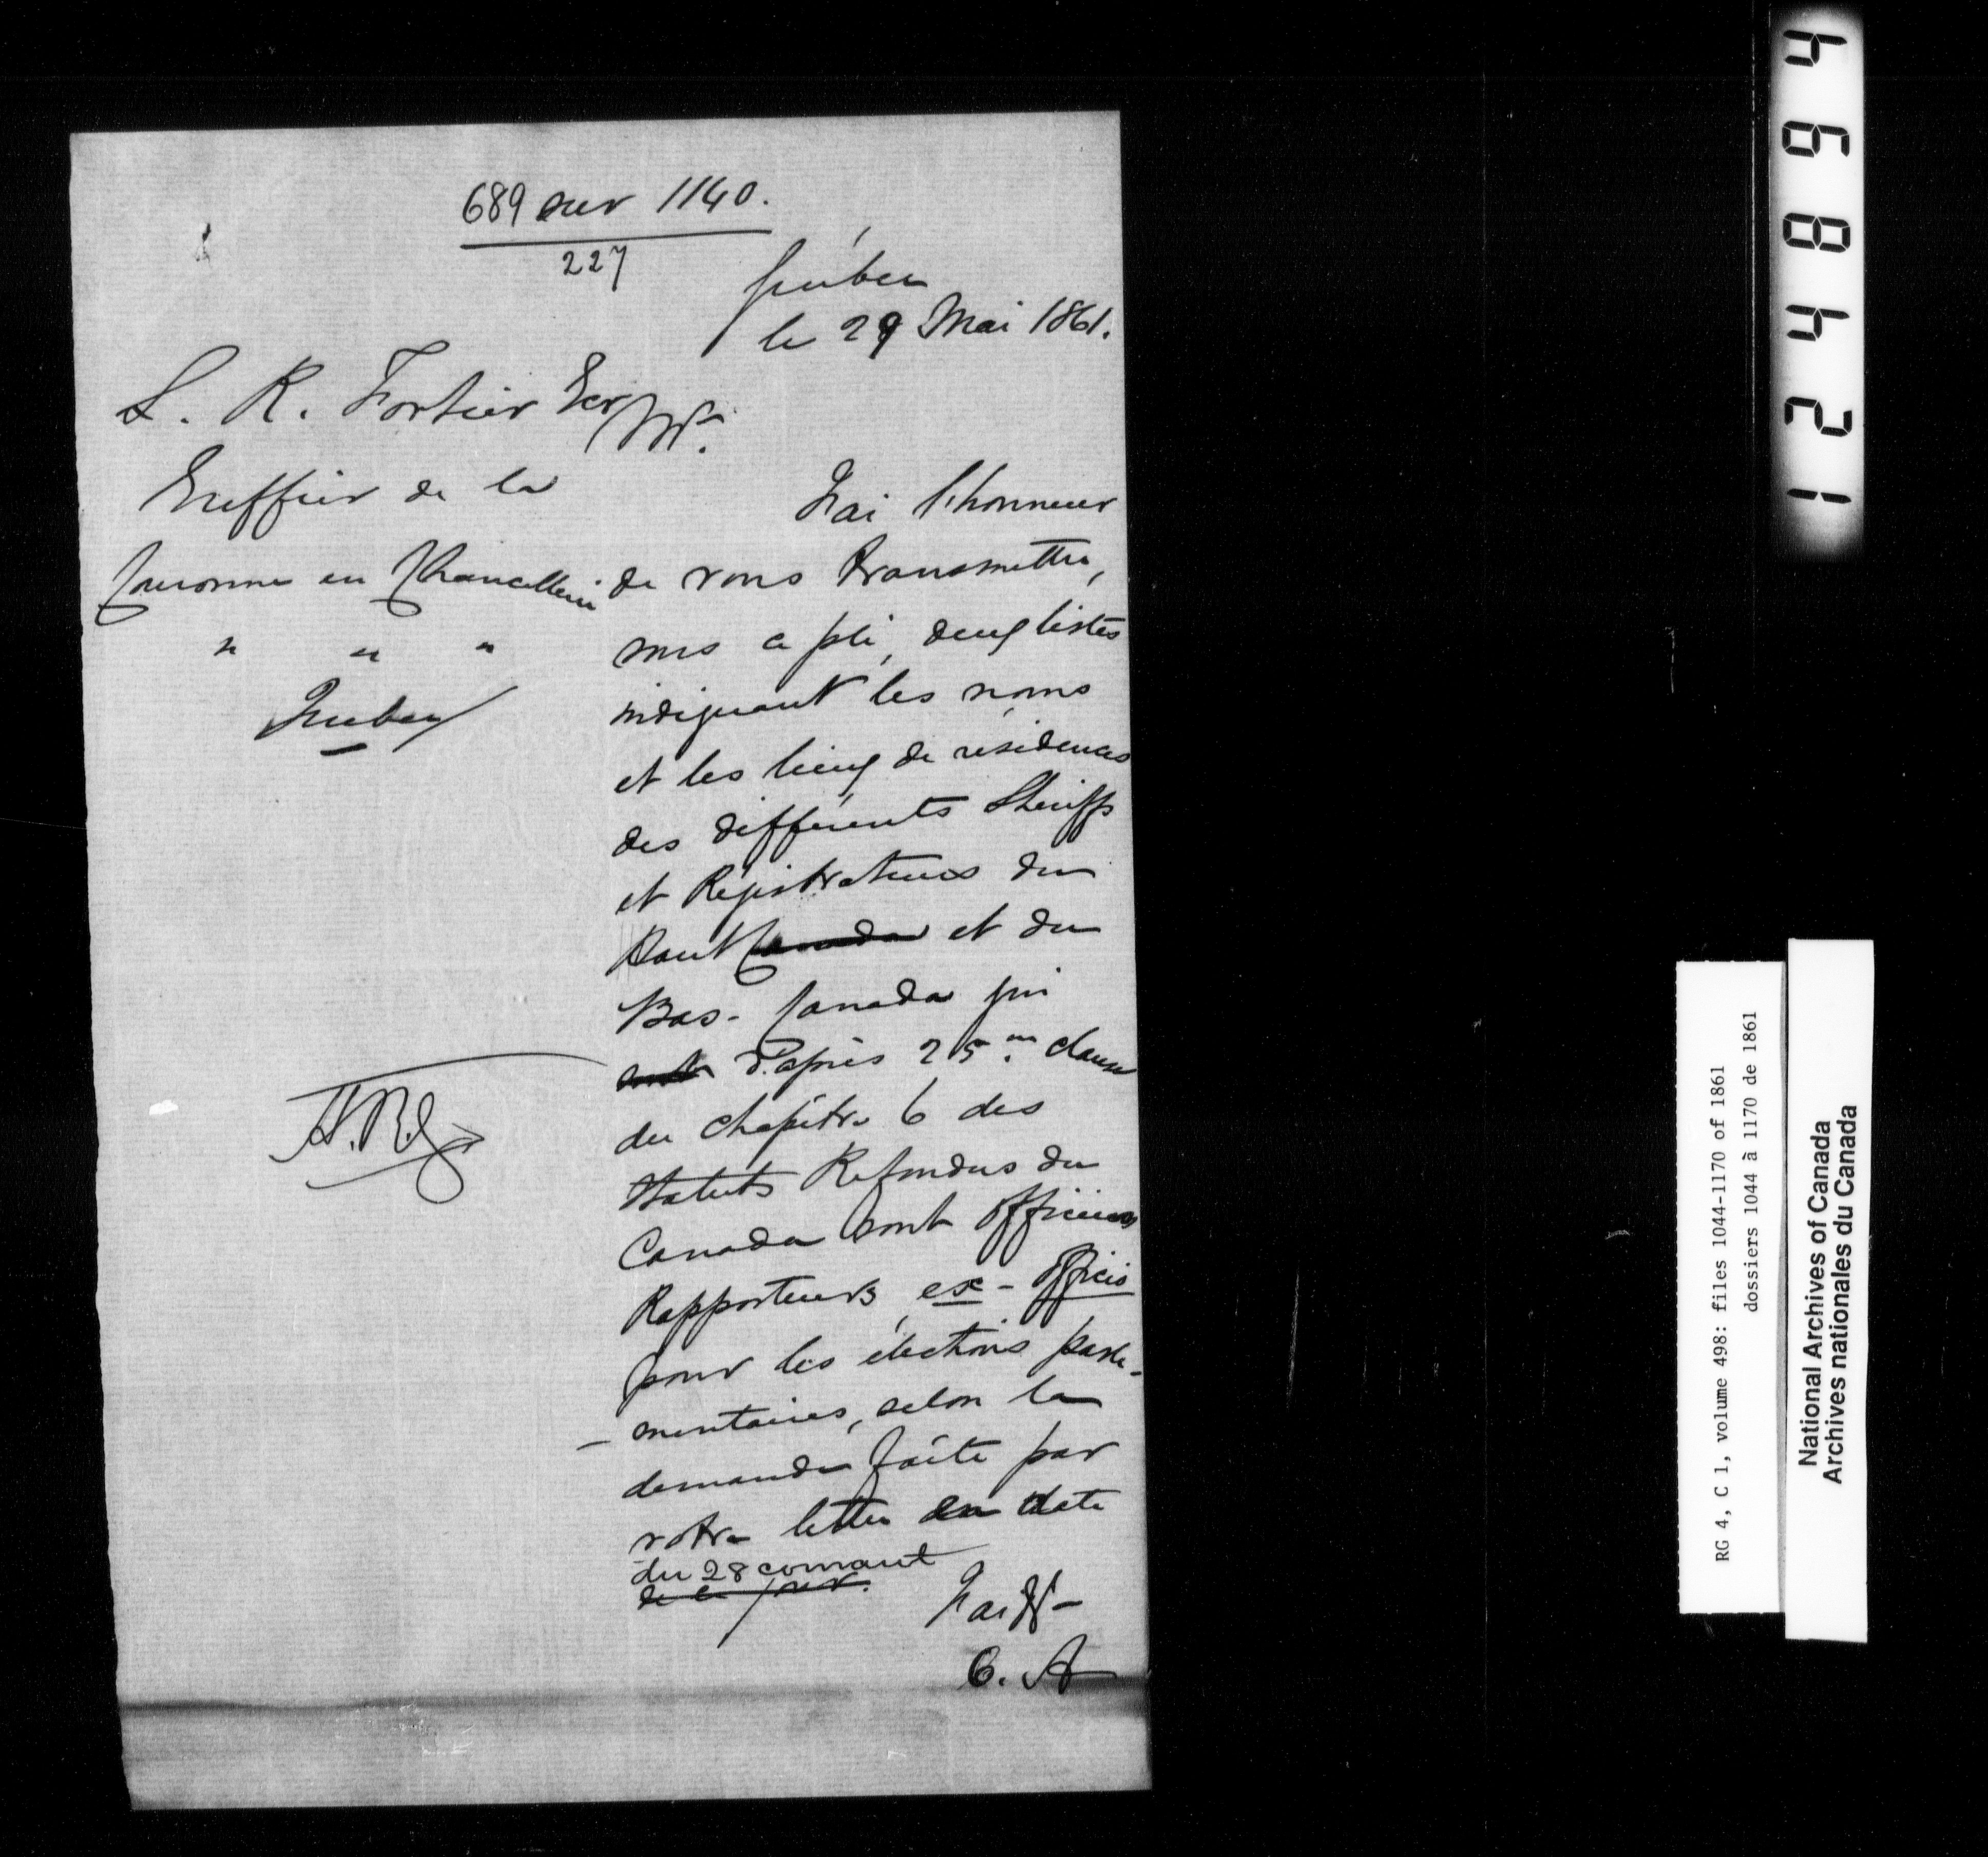 689 sur 1140.
227
Québec
le 29 Mai 1861.
L. R. Fortier Ecr
Mr.
Greffier de la
Couronne en Chancellerie
" " "
Québec
J'ai l'honneur
de vous transmettre,
sous ce pli, deux listes
indiquant les noms
et les lieux de résidences
des différents Shériffs
et Régistrateurs du
Haut Canada et du
Bas-Canada qui
sont d'après 25me clause
du chapitre 6 des
Statuts Refondus du
Canada sont officiers
Rapporteurs ex-officio
pour les élections parle-
-mentaires, selon la
demande faite par
votre lettre en date
du 28 courant
de ce jour.
J'ai &c
C. A
12489 4
RG 4, C 1, volume 498: files 1044-1170 of 1861
dossiers 1044 à 1170 de 1861
National Archives of Canada
Archives nationales du Canada